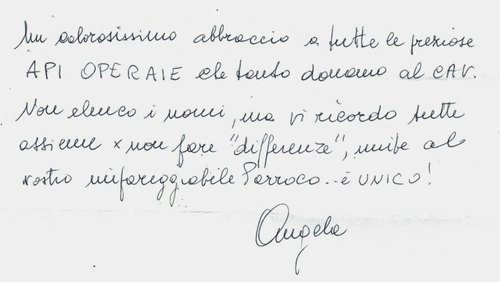 Un calorosissimo abbraccio a tutte le preziose
API OPERAIE che tanto donano al CAV.
Non elenco i nomi, ma vi ricordo tutte
assieme x non fare "differenze", unite al
vostro impareggiabile Parroco... è UNICO!
Angela